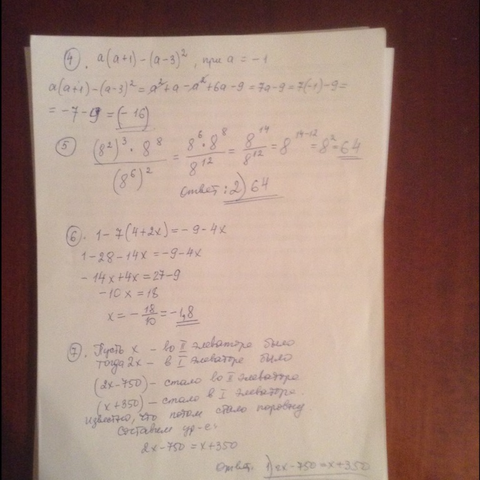 ④. a(a+1)-(a-3)², при a = -1
a(a+1)-(a-3)² = a²+a-a²+6a-9 = 7a-9 = 7(-1)-9 =
= -7-9 = (-16)
⑤ (8²)³·8⁸/(8⁶)² = 8⁶·8⁸/8¹² = 8¹⁴/8¹² = 8¹⁴⁻¹² = 8² = 64
Ответ: 2) 64
⑥. 1-7(4+2x) = -9-4x
1-28-14x = -9-4x
-14x+4x = 27-9
-10x = 18
x = -18/10 = -1,8
⑦. Пусть x - во II элеваторе было
тогда 2x - в I элеваторе было
(2x-750) - стало во II элеваторе.
(x+350) - стало в I элеваторе.
известно, что потом стало поровну
Составим ур-е:
2x-750 = x+350
Ответ: 1) 2x-750 = x+350